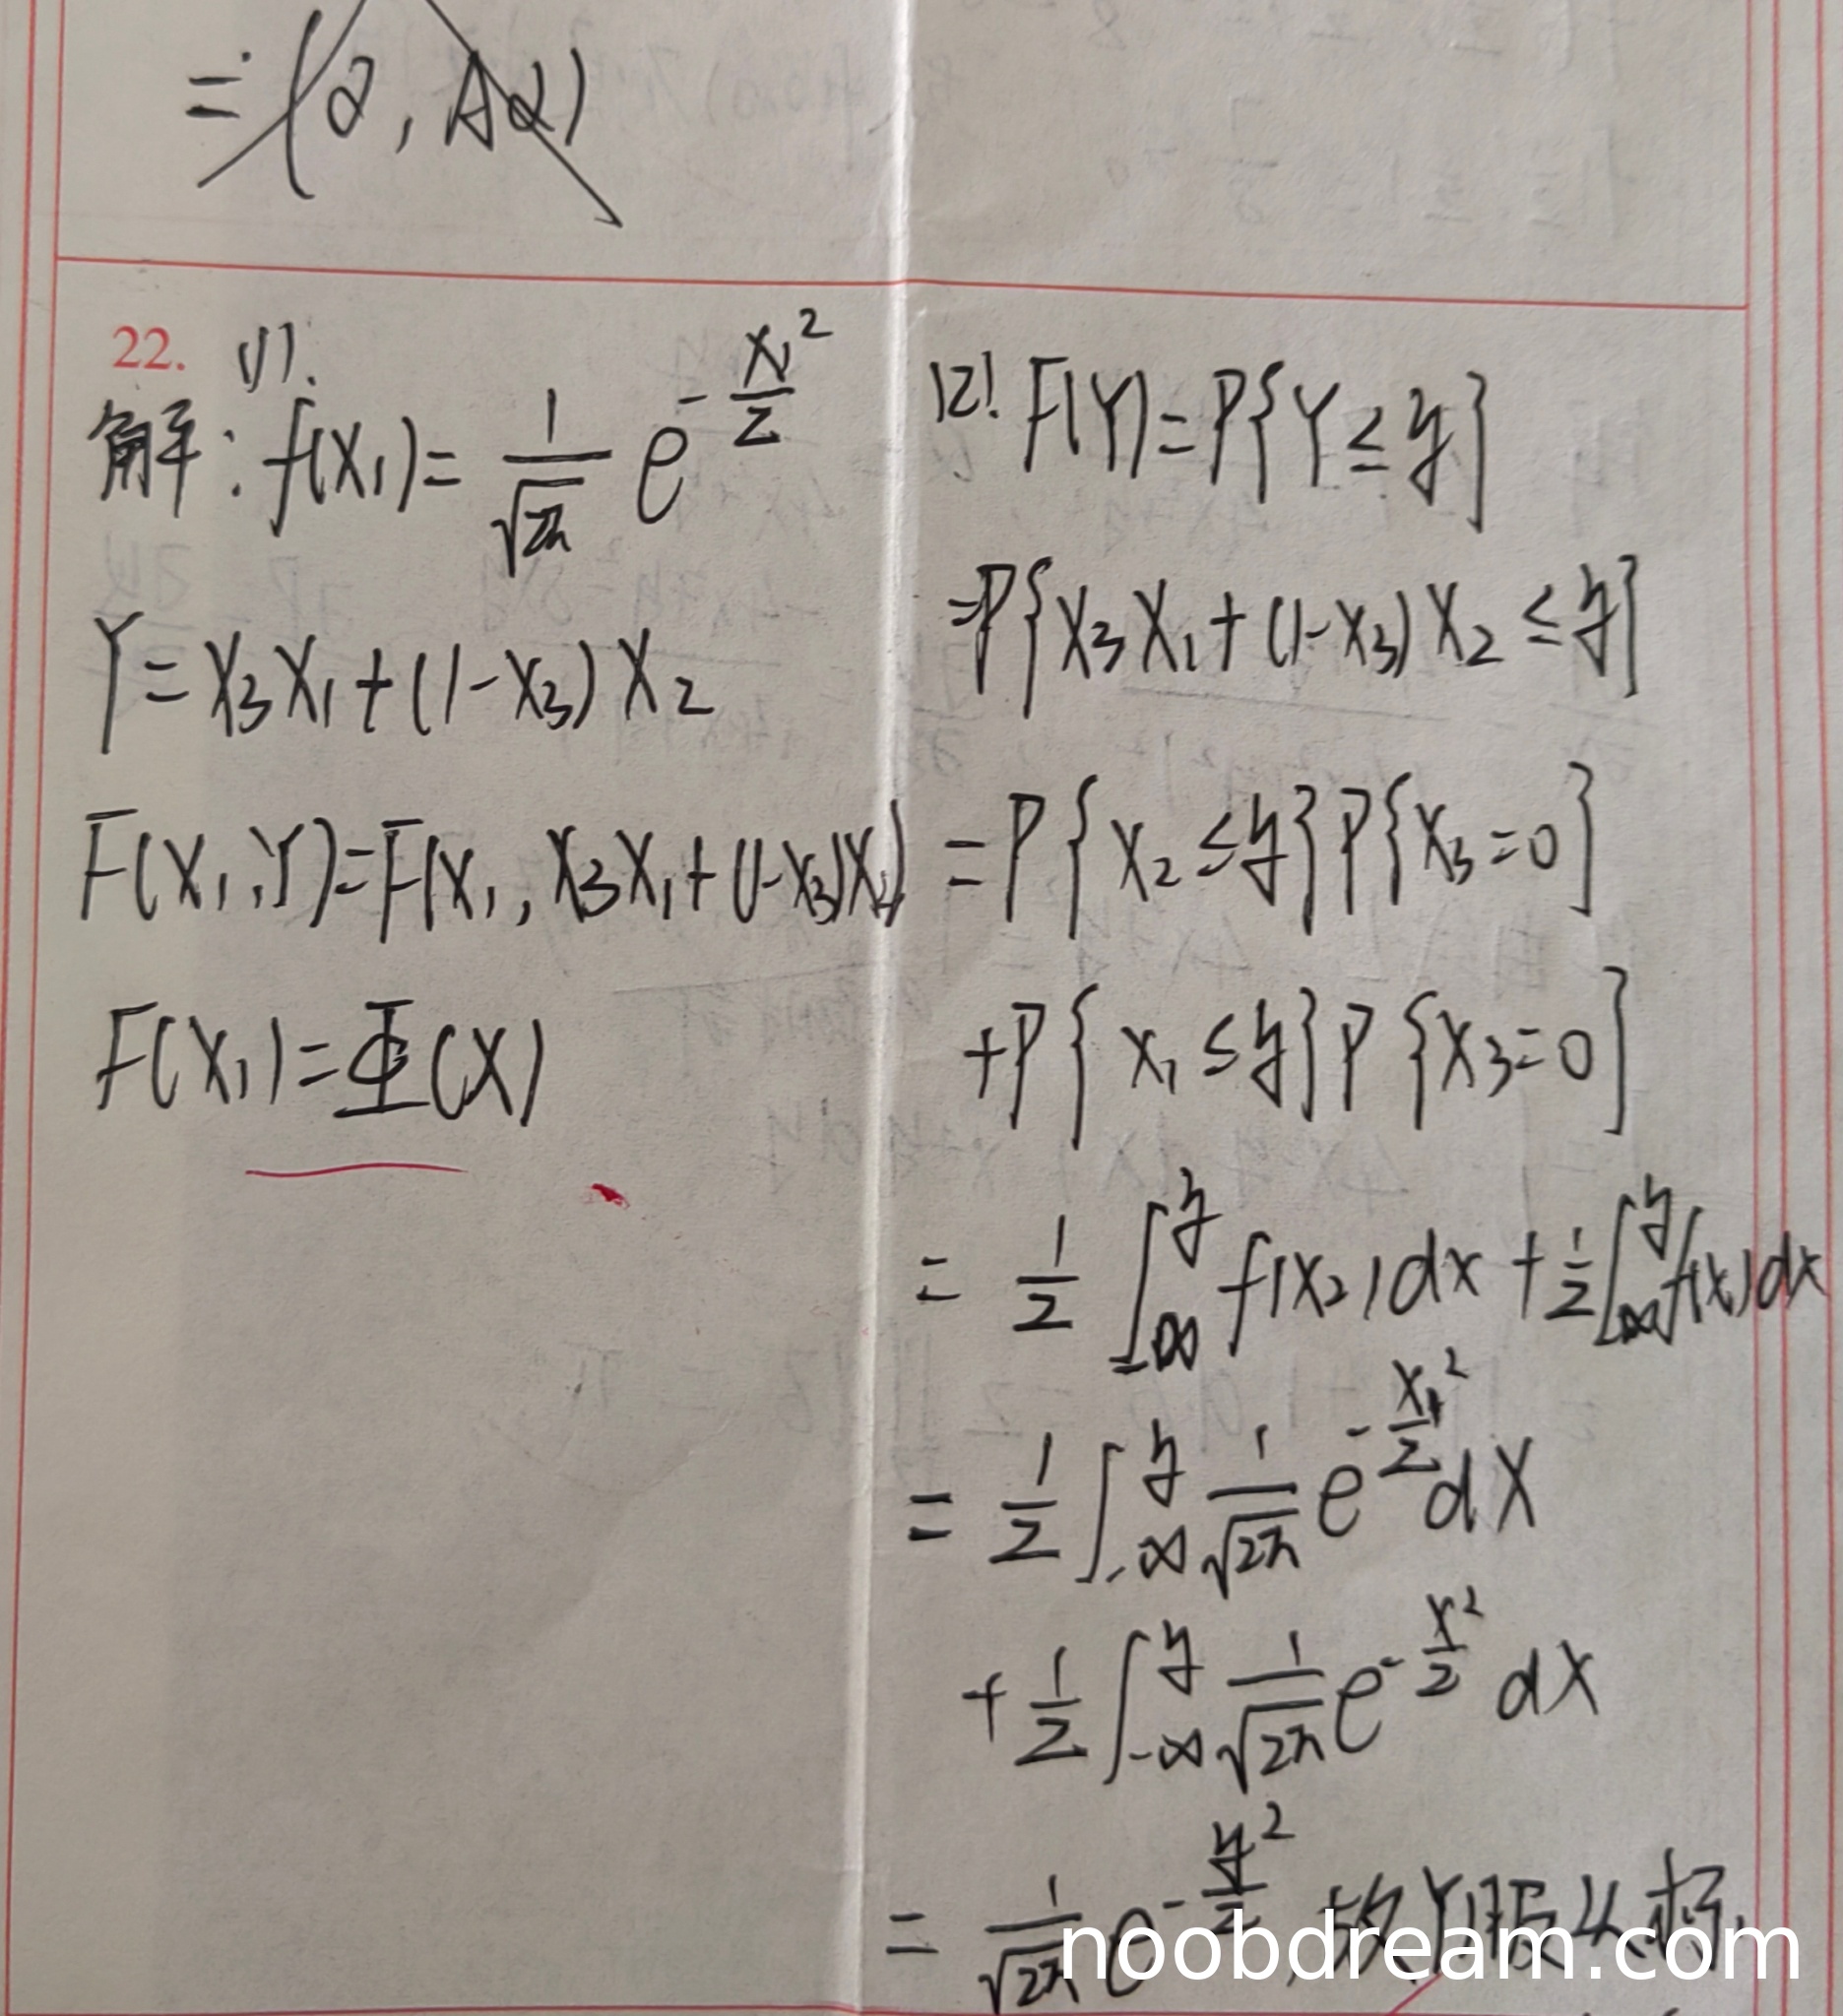 =(α, Aα)
22. (1).
解: f(X₁) = 1/√2π e^(-X₁²/2)
Y = X₃X₁ + (1-X₃) X₂
F(X₁, Y) = F(X₁, X₃X₁ + (1-X₃)X₂)
F(X₁) = Φ(X)
(2) F(Y) = P{Y ≤ y}
=P{X₃X₁ + (1-X₃) X₂ ≤ y}
= P{X₂ ≤ y} P{X₃=0}
+P{X₁ ≤ y} P{X₃=0}
= 1/2 ∫_{-∞}^{y} f(X₂)dx + 1/2 ∫_{-∞}^{y} f(X₁)dx
= 1/2 ∫_{-∞}^{y} 1/√2π e^(-X₁²/2) dX
+ 1/2 ∫_{-∞}^{y} 1/√2π e^(-X²/2) dX
= 1/√2π e^(-y²/2), 故Y服从标
noobdream.com